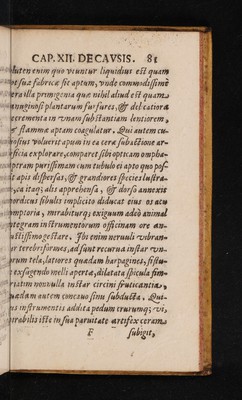 CAP. XII. DE CAVSIS. 81
luten enim quo vtuntur liquidius est quam
vt suæ fabricæ sit aptum, vnde commodissimè
cera illa primigenia quæ nihil aliud est quam
lanuginosi plantarum furfures, & delicatiora
excrementa in vnam substantiam lentiorem,
& flammæ aptam coagulatur. Qui autem cu-
riosius voluerit apum in ea cera subactione ar-
tificia explorare, comparet sibi opticam ompha-
loptram purissimam cum tubulo ei apto quo pos-
sit apis dispersas, & grandiores species lustra-
re, ea itaq; alis apprehensa, & dorso annexis
posticis sibus implicito diducat eius os acu
emptoria, mirabiturq; exiguum adeò animal
integram instrumentorum officinam ore an-
gustissimo gestare. Ibi enim neruuli vibran-
tur terebriformes, adsunt recurua instar vn-
guium tela, latiores quædam harpagines, fistu-
læ exsugendo melli apertæ, dilatata spicula sim-
ristim nonnulla instar circini fruticantia,
quædam autem concauo sinu subducta. Qui-
bus instrumentis addita pedum crurumq; vi,
mirabilis istæ in sua paruitate artifex ceram
F subigit,